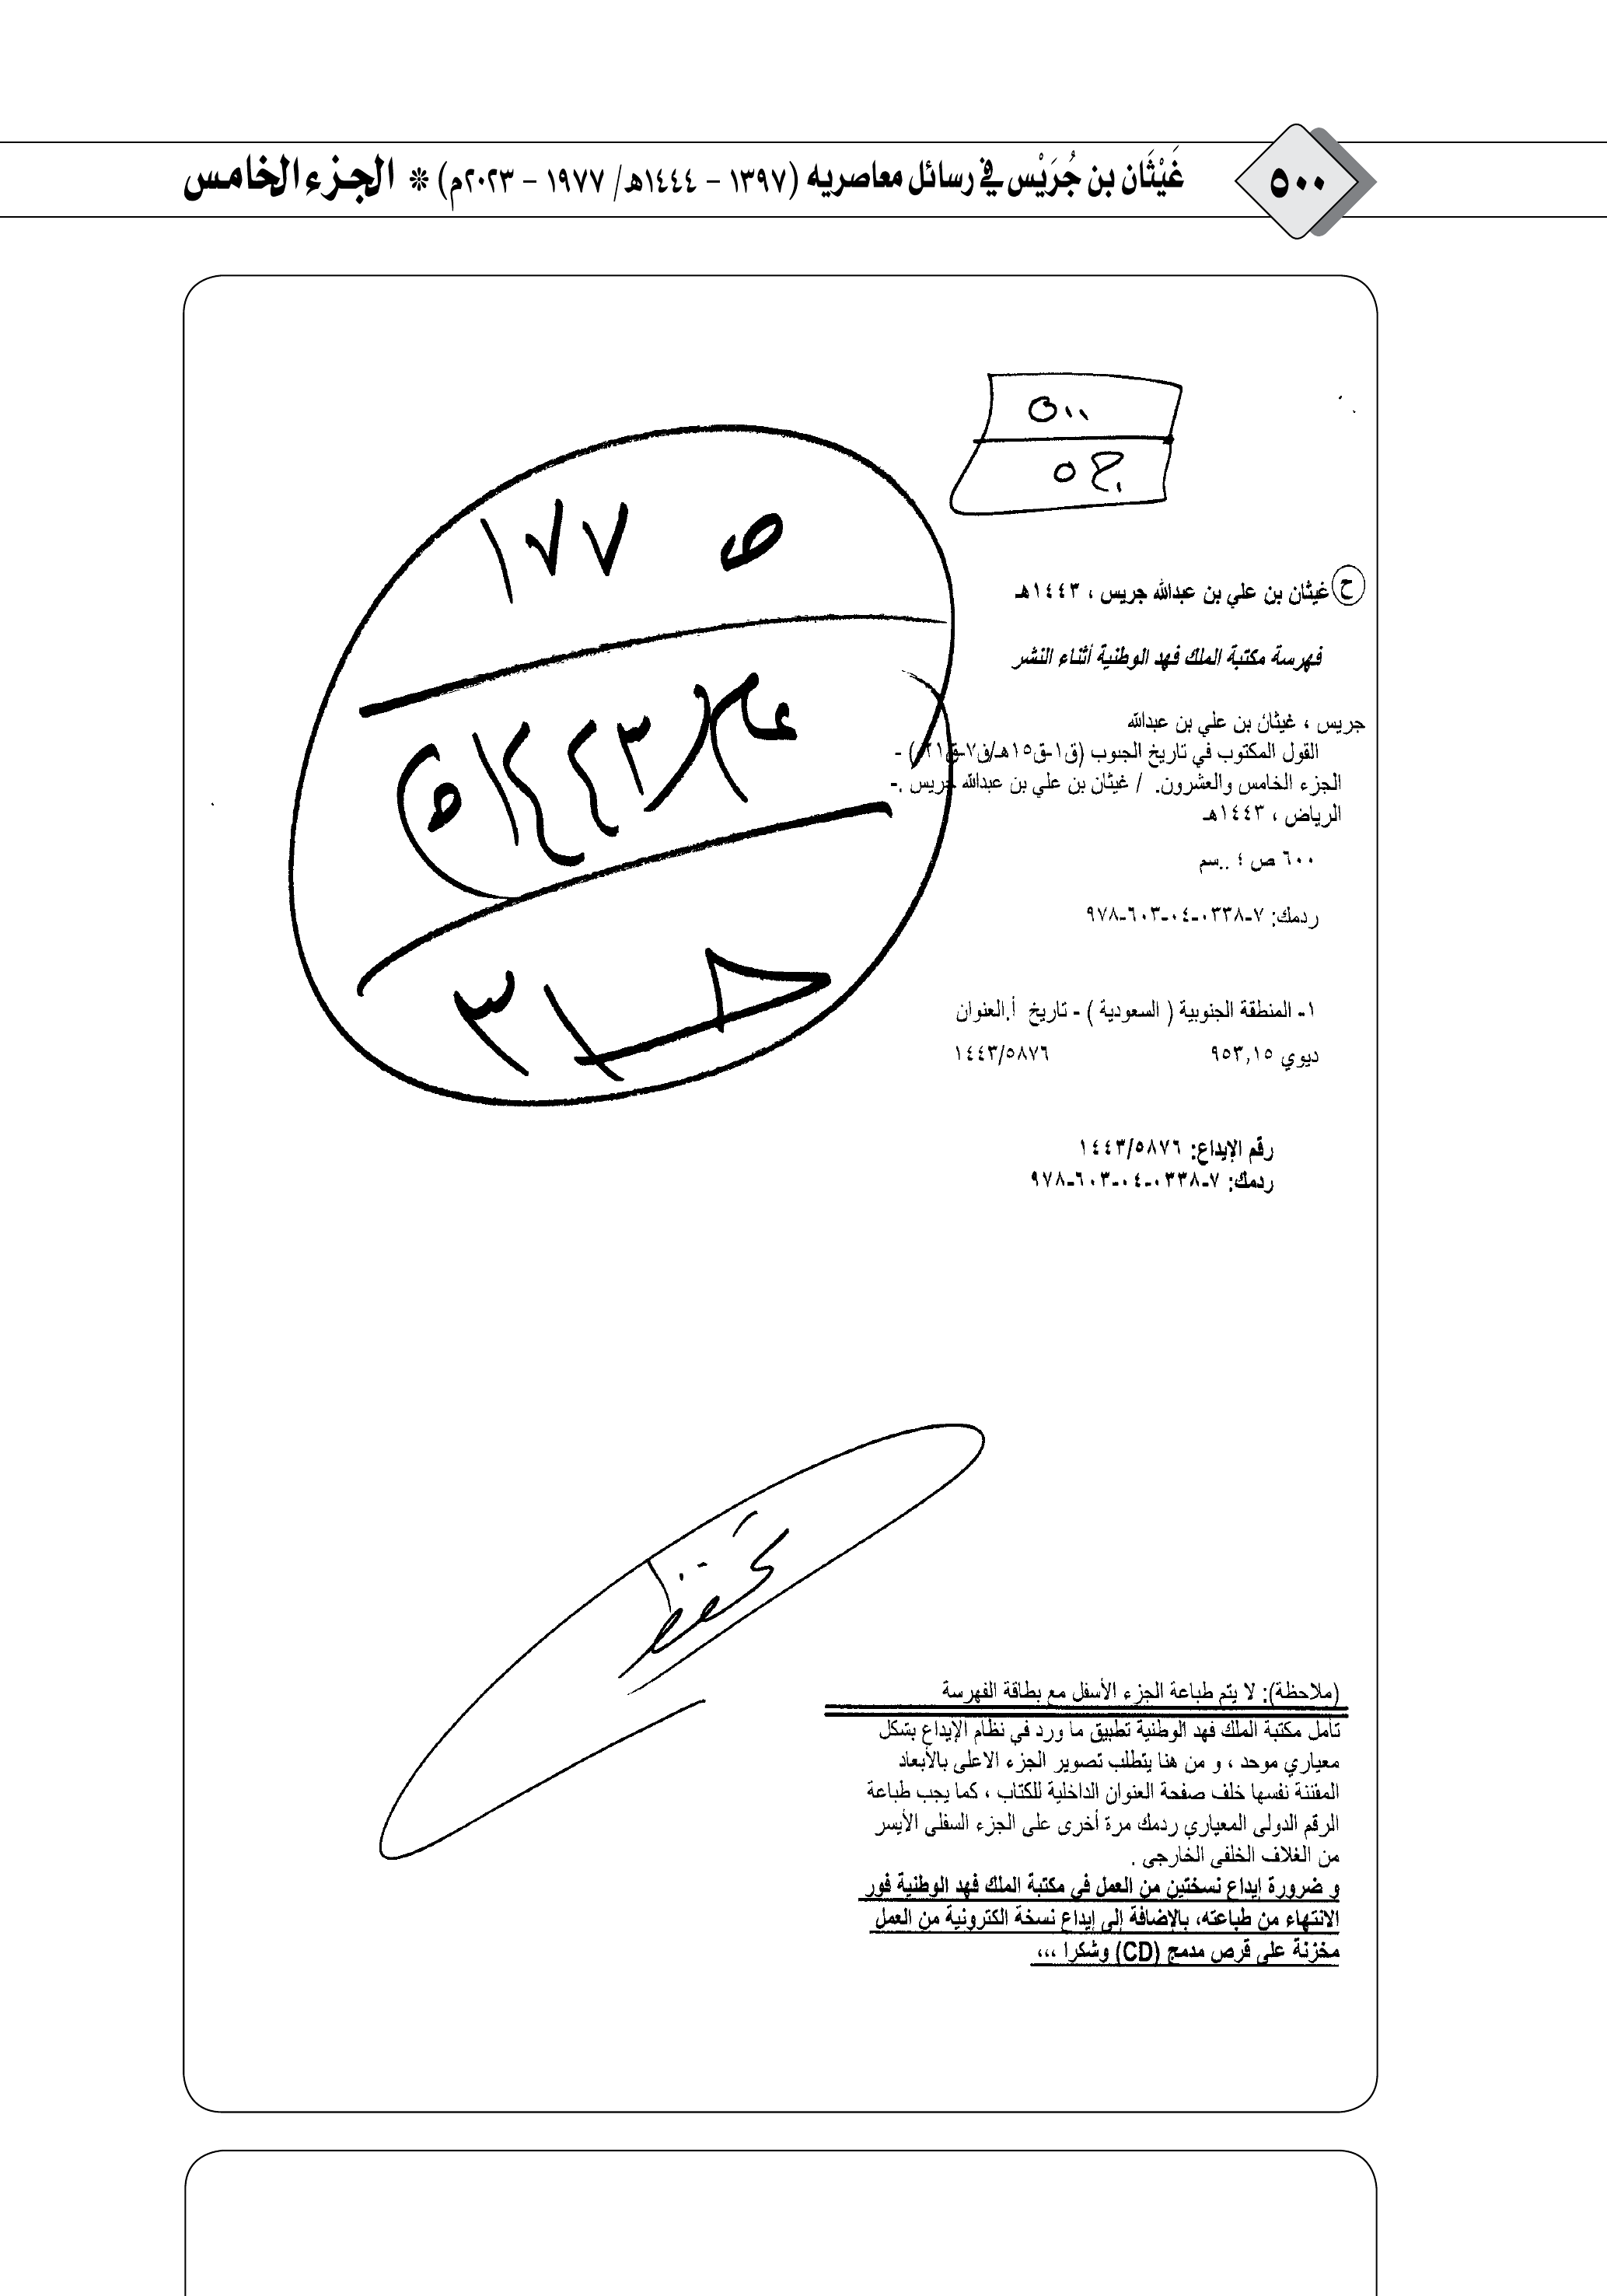 ٥٠٠
غَيْثَان بن جُرَيْس في رسائل معاصريه (١٣٩٧ – ١٤٤٤هـ/ ١٩٧٧ – ٢٠٢٣م) * الجزء الخامس
٥٠٠
ج ٥
ص ١٧٧
عام ١٤٤٣هـ
٣١
ح غيثان بن علي بن عبدالله جريس ، ١٤٤٣هـ
فهرسة مكتبة الملك فهد الوطنية أثناء النشر
جريس ، غيثان بن علي بن عبدالله
القول المكتوب في تاريخ الجنوب (ق١-ق١٥هـ/ق٧-ق٢١م) -
الجزء الخامس والعشرون. / غيثان بن علي بن عبدالله جريس .-
الرياض ، ١٤٤٣هـ
٦٠٠ ص ؛ ..سم
ردمك: ٧-٠٣٣٨-٠٤-٦٠٣-٩٧٨
١- المنطقة الجنوبية ( السعودية ) - تاريخ أ.العنوان
ديوي ٩٥٣,١٥ ١٤٤٣/٥٨٧٦
رقم الإيداع: ١٤٤٣/٥٨٧٦
ردمك: ٧-٠٣٣٨-٠٤-٦٠٣-٩٧٨
يحفظ
(ملاحظة): لا يتم طباعة الجزء الأسفل مع بطاقة الفهرسة
تأمل مكتبة الملك فهد الوطنية تطبيق ما ورد في نظام الإيداع بشكل
معياري موحد ، و من هنا يتطلب تصوير الجزء الاعلى بالأبعاد
المقننة نفسها خلف صفحة العنوان الداخلية للكتاب ، كما يجب طباعة
الرقم الدولى المعياري ردمك مرة أخرى على الجزء السفلى الأيسر
من الغلاف الخلفى الخارجى .
و ضرورة إيداع نسختين من العمل في مكتبة الملك فهد الوطنية فور
الانتهاء من طباعته، بالإضافة إلى إيداع نسخة الكترونية من العمل
مخزنة على قرص مدمج (CD) وشكرا ،،،